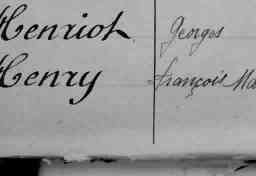 Henriot Georges
Henry François Ma